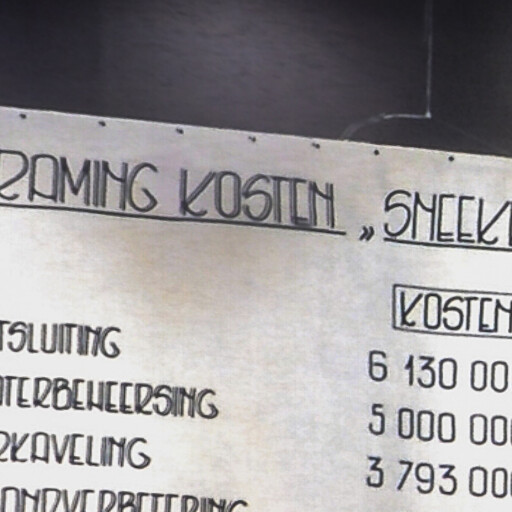 RAMING KOSTEN „SNEEK
KOSTEN
TSLUITING 6 130 00
TERBEHEERSING 5 000 00
RKAVELING 3 793 00
ONDVERBETERING